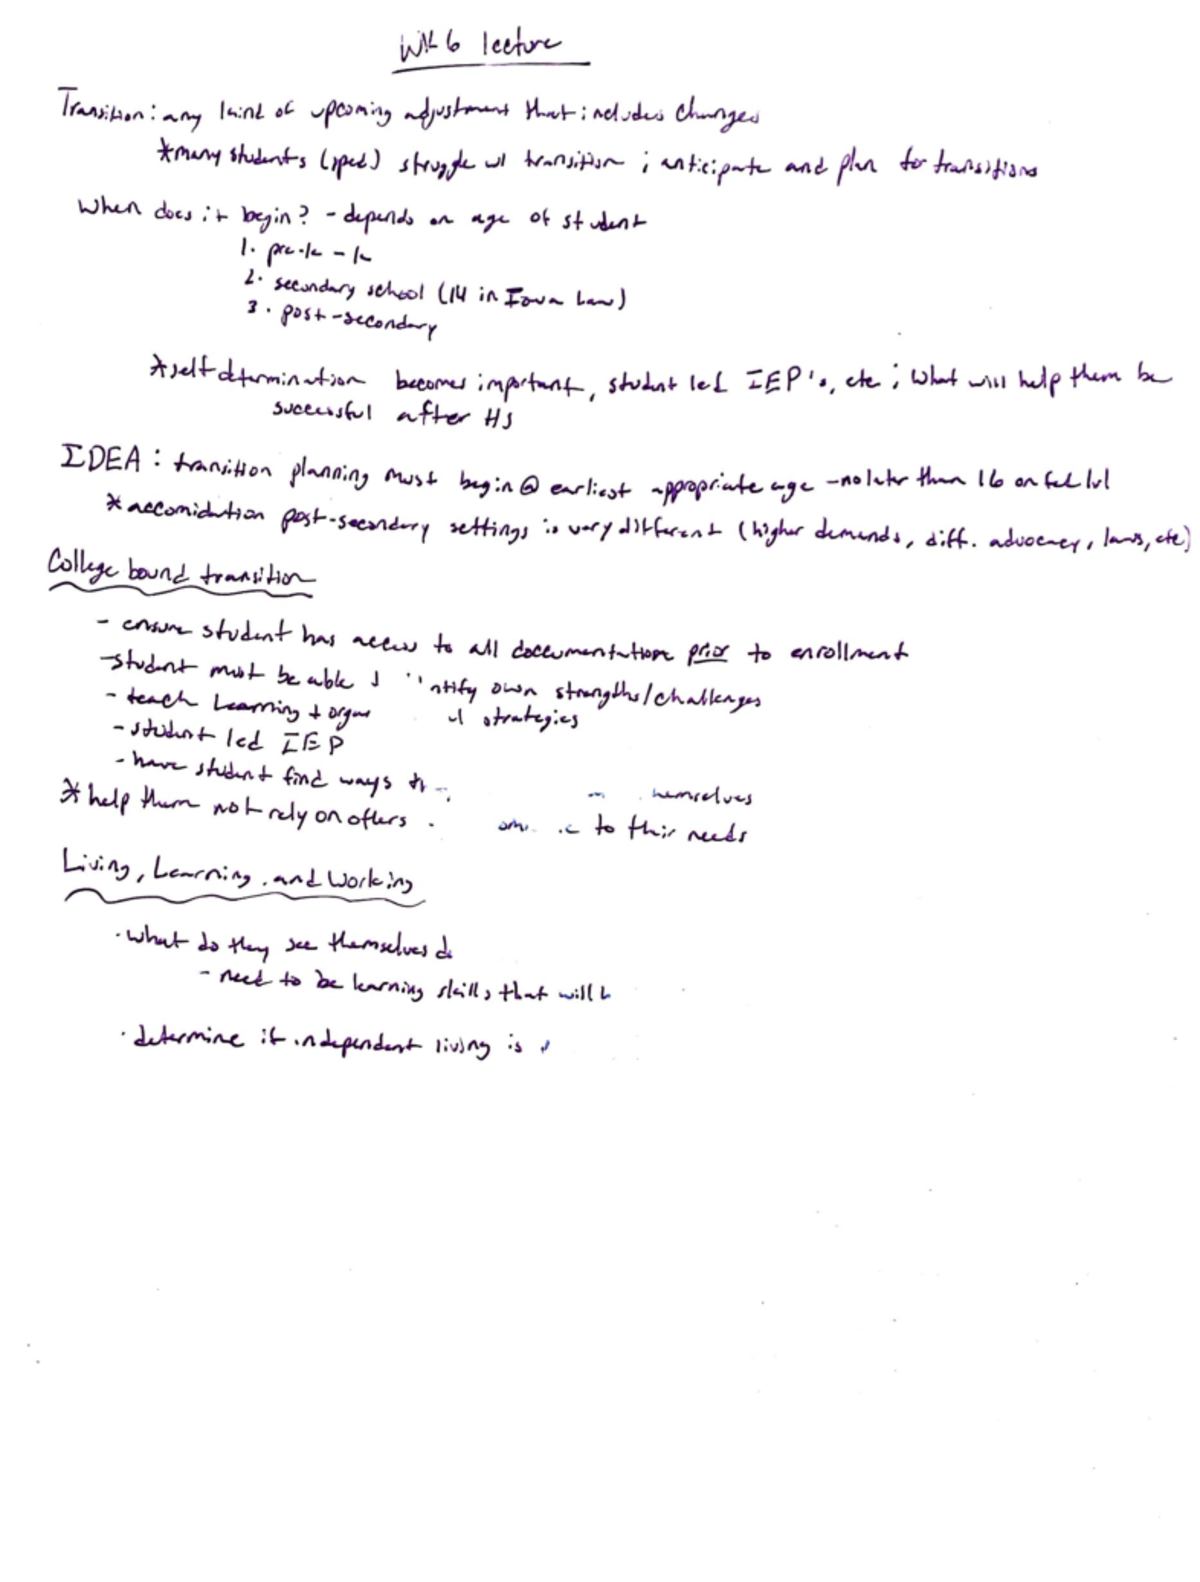 WK 6 lecture
Transition: any kind of upcoming adjustment that includes changes
*many students (sped) struggle w/ transition ; anticipate and plan for transitions
When does it begin? - depends on age of student
1. pre-k - k
2. secondary school (14 in Iowa Law)
3. post-secondary
*self determination becomes important, student led IEP's, etc ; What will help them be
successful after HS
IDEA : transition planning must begin @ earliest appropriate age - no later than 16 on fed lvl
* accomidation post-secondary settings is very different (higher demands, diff. advocacy, laws, etc)
College bound transition
- ensure student has access to all documentation prior to enrollment
- student must be able own strengths/challenges
- teach Learning + strategies
- student led IEP
- have student find ways themselves
* help them not rely on others to their needs
Living, Learning, and Working
· what do they see themselves
- need to be learning skills that will
· determine if independent living is